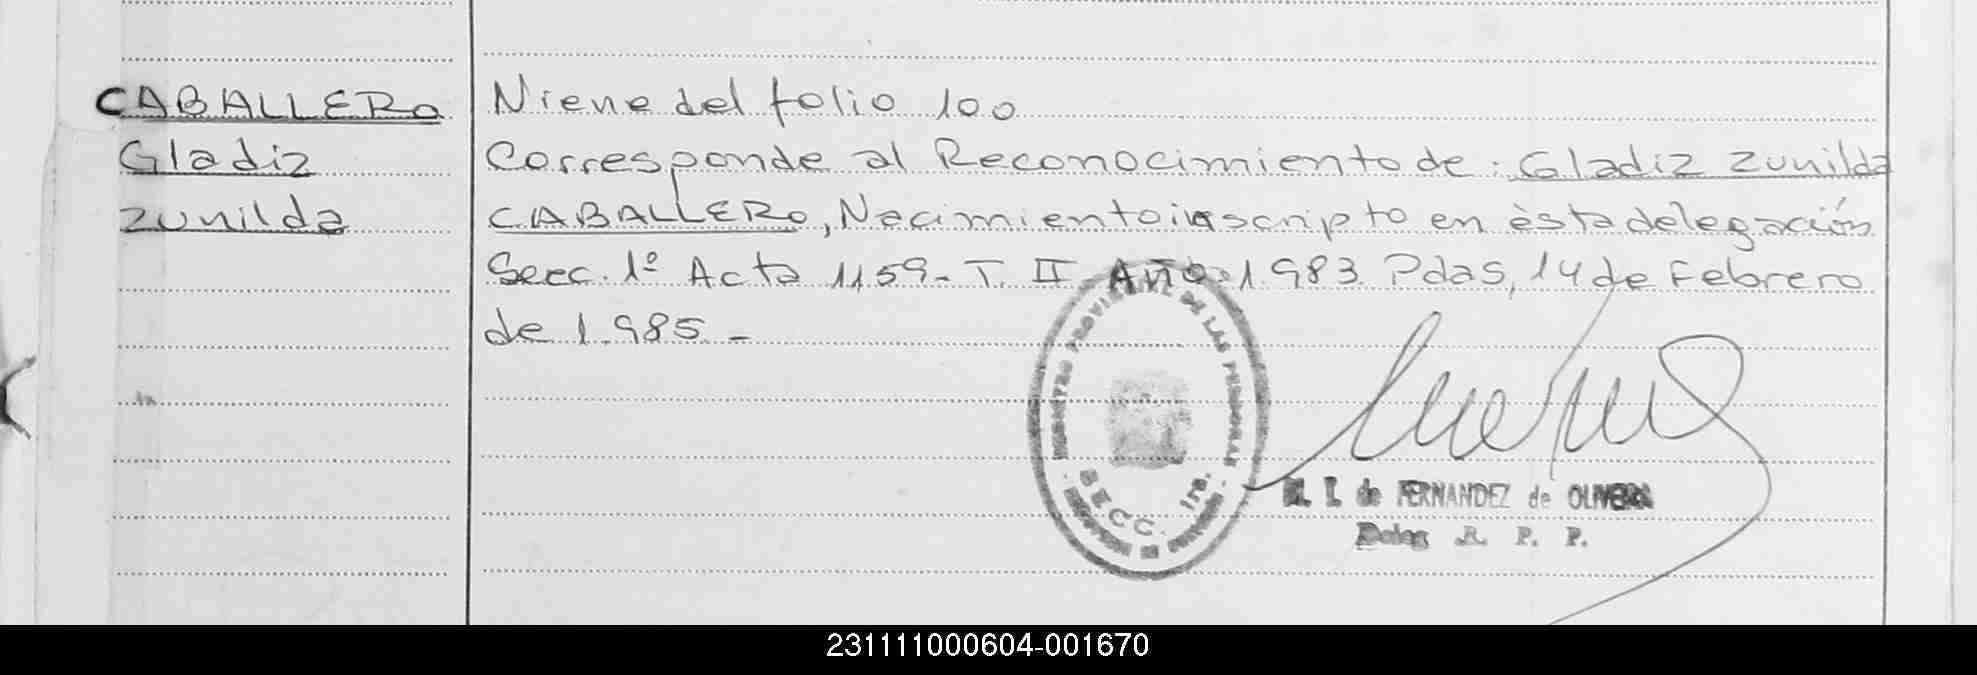 CABALLERO
Gladiz
Zunilda
Niene del folio 100
Corresponde al Reconocimiento de: Gladiz Zunilda
CABALLERO, Nacimiento inscripto en èsta delegación
Secc. 1º Acta 1159- T. II Año 1.983. Pdas, 14 de Febrero
de 1.985. -
REGISTRO PROVINCIAL DE LAS PERSONAS
SECC. 1ra.
I. de FERNANDEZ de OLIVERA
Deleg R. P. P.
231111000604-001670